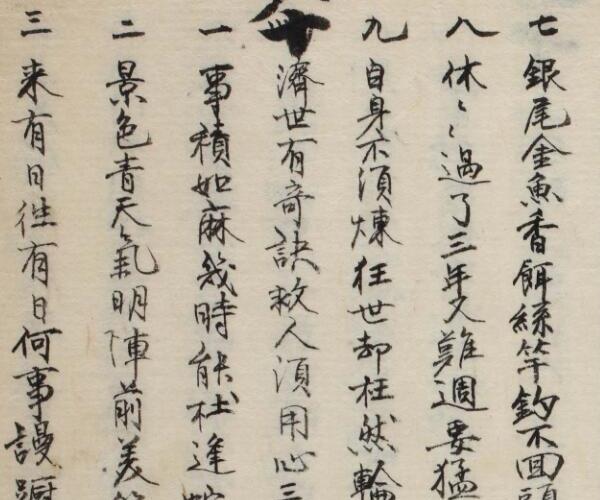 七 銀尾金魚香餌絲竿釣不回頭
八 休〻過了三年又難週要猛
九 自身不須煉狂世却枉然輪
卅 濟世有奇訣救人須用心三
一 事積如麻幾時能杜逢
二 景色青天氣明陣前美
三 来有日徃有日何事謾